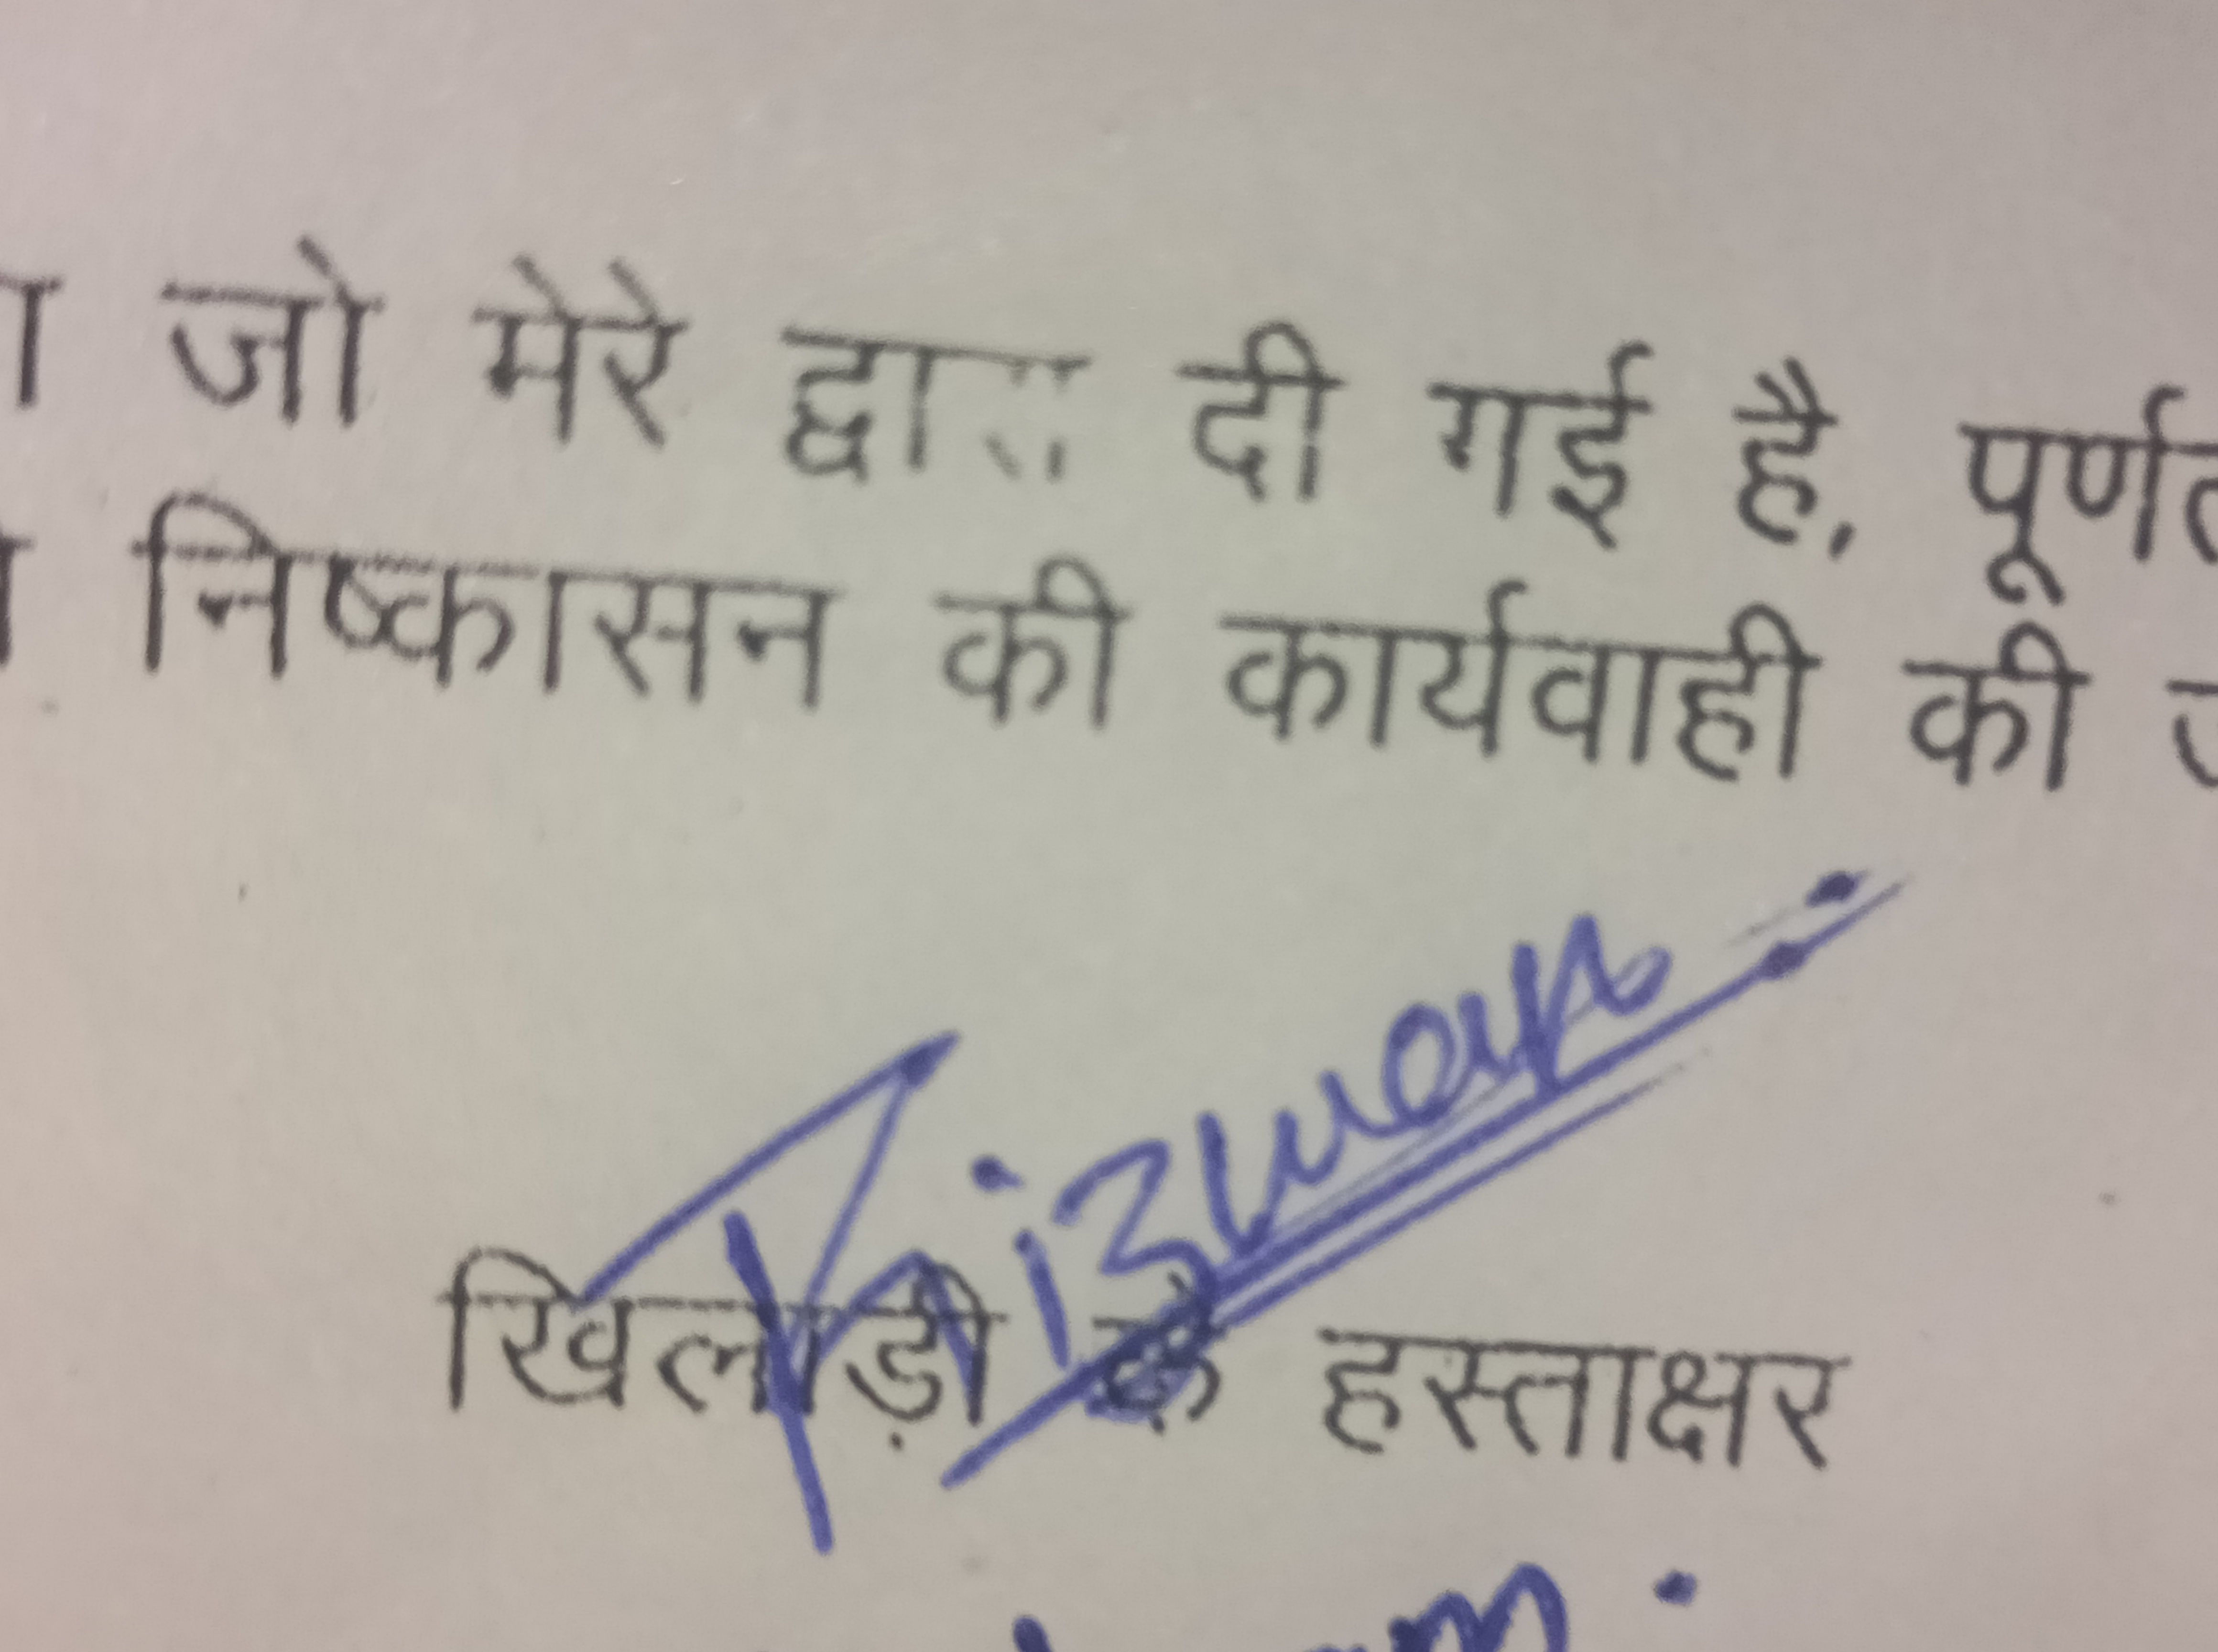 जो मेरे द्वारा दी गई है, पूर्णत
निष्कासन की कार्यवाही की
Rizwan
खिलाड़ी के हस्ताक्षर